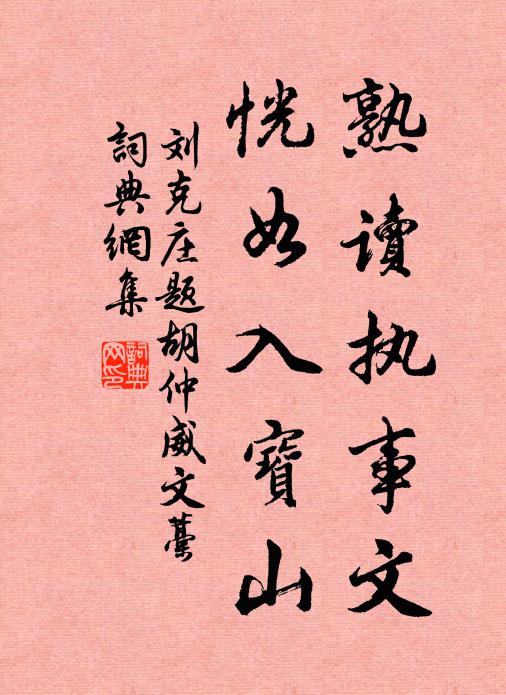 熟读执事文
恍如入寶山
刘克庄题胡仲威文藁
詞典網集
詞典网印